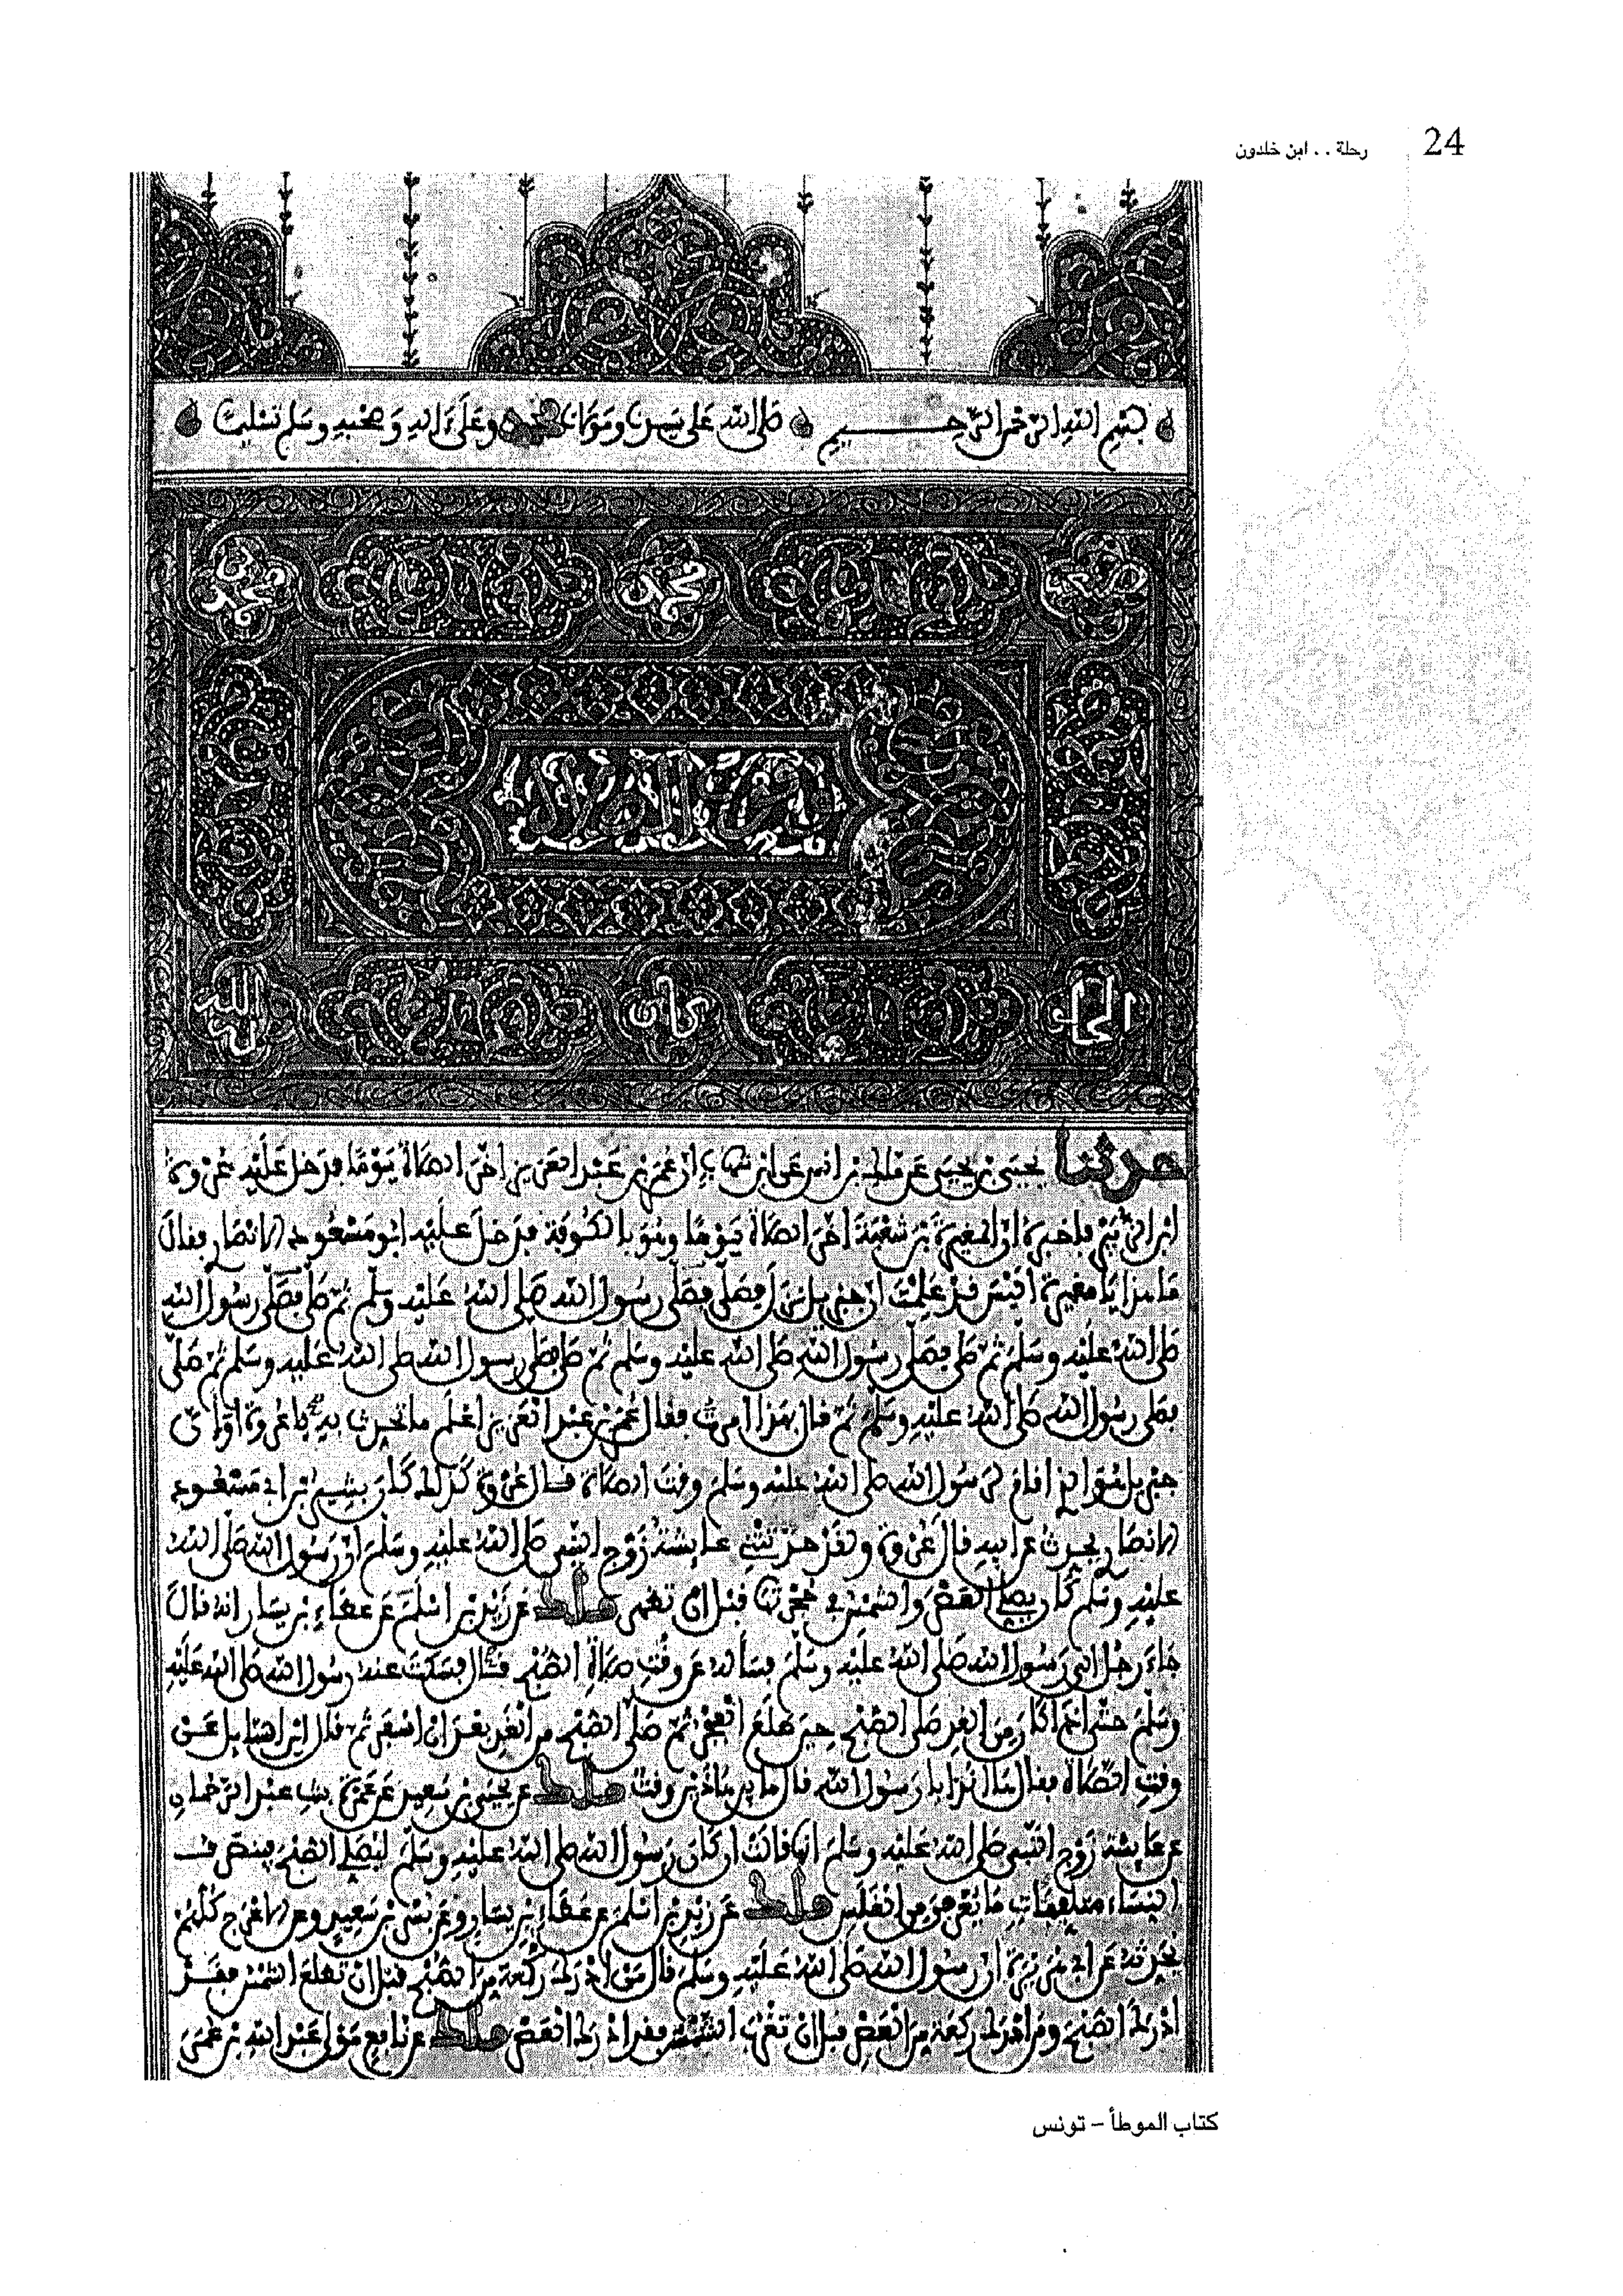 24 رحلة . . ابن خلدون
بسم الله الرحمن الرحيم صلى الله على سيدنا ومولانا محمد وعلى ءاله وصحبه وسلم تسليما
محمد
لله
حدثنا يحيى بن يحيى عن ملك بن انس عن ابن شهاب ان عمر بن عبد العزيز اخر الصلاة يوما فدخل عليه عروة
ابن الزبير فاخبره ان المغيرة بن شعبة اخر الصلاة يوما وهو بالكوفة فدخل عليه ابو مسعود الانصاري فقال
ما هذا يا مغيرة اليس قد علمت ان جبريل نزل فصلى فصلى رسول الله صلى الله عليه وسلم ثم صلى فصلى رسول الله
صلى الله عليه وسلم ثم صلى فصلى رسول الله صلى الله عليه وسلم ثم صلى فصلى رسول الله صلى الله عليه وسلم ثم صلى
فصلى رسول الله صلى الله عليه وسلم ثم قال بهذا امرت فقال عمر بن عبد العزيز اعلم ما تحدث به يا عروة او ان
جبريل هو الذي اقام لرسول الله صلى الله عليه وسلم وقت الصلاة قال عروة كذلك كان بشير بن ابي مسعود
الانصاري يحدث عن ابيه قال عروة ولقد حدثتني عايشة زوج النبي صلى الله عليه وسلم ان رسول الله صلى الله
عليه وسلم كان يصلي العصر والشمس في حجرتها قبل ان تظهر ملك عن زيد بن اسلم عن عطاء بن يسار انه قال
جاء رجل الى رسول الله صلى الله عليه وسلم فساله عن وقت صلاة الصبح قال فسكت عنه رسول الله صلى الله عليه
وسلم حتى اذا كان من الغد صلى الصبح حين طلع الفجر ثم صلى الصبح من الغد بعد ان اسفر ثم قال اين السايل عن
وقت الصلاة فقال هانذا يا رسول الله قال ما بين هاذين وقت ملك عن يحيى بن سعيد عن عمرة بنت عبد الرحمان
عن عايشة زوج النبي صلى الله عليه وسلم انها قالت ان كان رسول الله صلى الله عليه وسلم ليصلي الصبح فينصرف
النساء متلفعات ما يعرفن من الغلس ملك عن زيد بن اسلم عن عطاء بن يسار وعن بسر بن سعيد وعن الاعرج كلهم
يحدثه عن ابي هريرة ان رسول الله صلى الله عليه وسلم قال من ادرك ركعة من الصبح قبل ان تطلع الشمس فقد
ادرك الصبح ومن ادرك ركعة من العصر قبل ان تغرب الشمس فقد ادرك العصر ملك عن نافع مولى عبد الله بن عمر
كتاب الموطأ – تونس